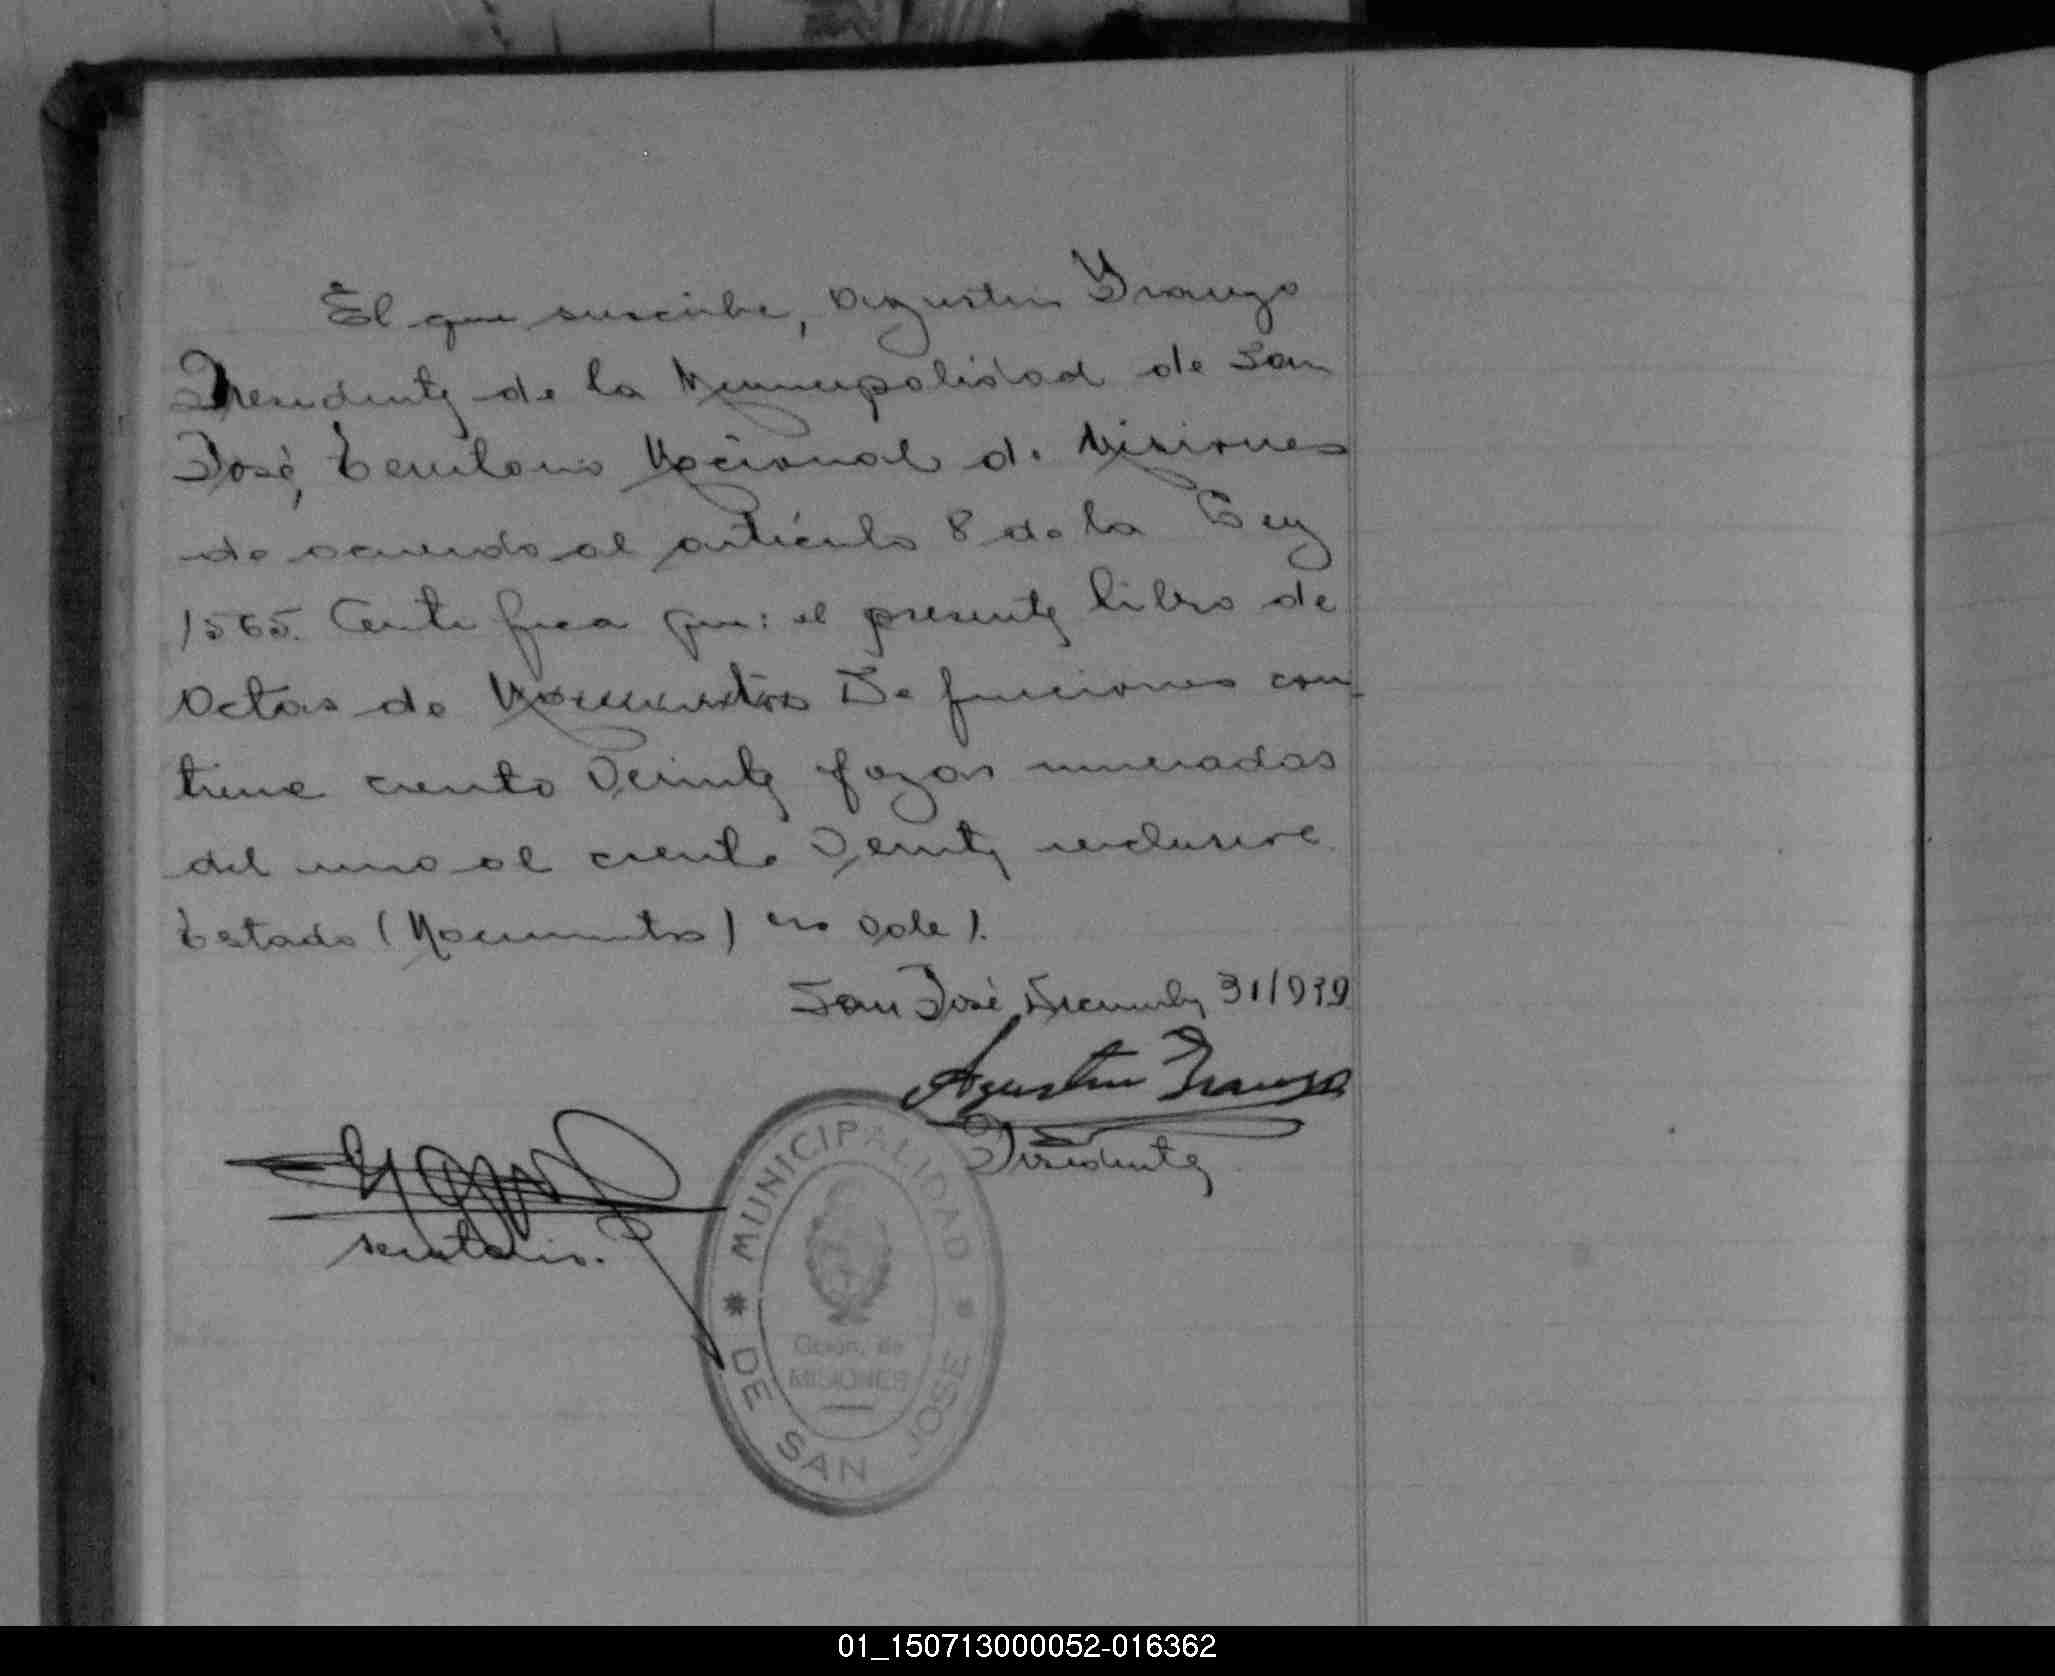 El que suscribe, Agustin Iranzo
Presidente de la Municipalidad de San
José, Territorio Nacional de Misiones
de acuerdo al artículo 8 de la Ley
1565. Certifica que: el presente libro de
Actas de Nacimientos Defunciones con-
tiene ciento veinte fojas numeradas
del uno al ciento veinte inclusive.
Testado (Nacimientos) no vale).
San José, Diciembre 31/939
Agustin Iranzo
Presidente
secretario.
MUNICIPALIDAD
DE SAN JOSE
Gción. de
MISIONES
01_150713000052-016362